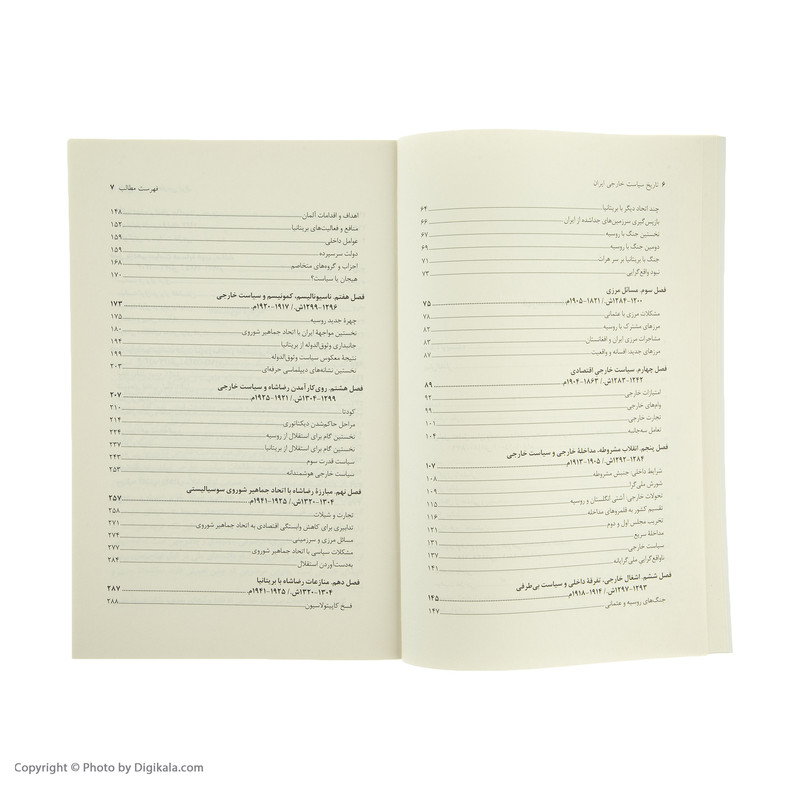 ۶ تاریخ سیاست خارجی ایران
چند اتحاد دیگر با بریتانیا ۶۴
بازپس‌گیری سرزمین‌های جداشده از ایران ۶۶
نخستین جنگ با روسیه ۶۷
دومین جنگ با روسیه ۶۹
جنگ با بریتانیا بر سر هرات ۷۱
نبود واقع‌گرایی ۷۳
فصل سوم. مسائل مرزی
۱۲۰۰-۱۲۸۴ش./ ۱۸۲۱-۱۹۰۵م. ۷۵
مشکلات مرزی با عثمانی ۷۸
مرزهای مشترک با روسیه ۸۲
مشاجرات مرزی ایران و افغانستان ۸۳
مرزهای جدید: افسانه و واقعیت ۸۷
فصل چهارم. سیاست خارجی اقتصادی
۱۲۴۲-۱۲۸۳ش./ ۱۸۶۳-۱۹۰۴م. ۸۹
امتیازات خارجی ۹۲
وام‌های خارجی ۹۹
تجارت خارجی ۱۰۱
تعامل سه‌جانبه ۱۰۴
فصل پنجم. انقلاب مشروطه، مداخلۀ خارجی و سیاست خارجی
۱۲۸۴-۱۲۹۲ش./ ۱۹۰۵-۱۹۱۳م. ۱۰۷
شرایط داخلی: جنبش مشروطه ۱۰۸
شورش ملی‌گرا ۱۰۹
تحولات خارجی: آشتی انگلستان و روسیه ۱۱۵
تقسیم کشور به قلمروهای مداخله ۱۱۶
تخریب مجلس اول و دوم ۱۲۱
مداخلۀ سریع ۱۳۱
سیاست خارجی ۱۳۷
ناواقع‌گرایی ملی‌گرایانه ۱۴۱
فصل ششم. اشغال خارجی، تفرقۀ داخلی و سیاست بی‌طرفی
۱۲۹۳-۱۲۹۷ش./ ۱۹۱۴-۱۹۱۸م. ۱۴۵
جنگ‌های روسیه و عثمانی ۱۴۷
فهرست مطالب ۷
اهداف و اقدامات آلمان ۱۴۸
منافع و فعالیت‌های بریتانیا ۱۵۲
عوامل داخلی ۱۵۹
دولت سرسپرده ۱۵۹
احزاب و گروه‌های متخاصم ۱۶۸
هیجان یا سیاست؟ ۱۷۰
فصل هفتم. ناسیونالیسم، کمونیسم و سیاست خارجی
۱۲۹۶-۱۲۹۹ش./ ۱۹۱۷-۱۹۲۰م. ۱۷۳
چهرۀ جدید روسیه ۱۷۵
نخستین مواجهۀ ایران با اتحاد جماهیر شوروی ۱۸۰
جانبداری وثوق‌الدوله از بریتانیا ۱۹۴
نتیجۀ معکوس سیاست وثوق‌الدوله ۱۹۹
نخستین نشانه‌های دیپلماسی حرفه‌ای ۲۰۳
فصل هشتم. روی کار آمدن رضاشاه و سیاست خارجی
۱۲۹۹-۱۳۰۴ش./ ۱۹۲۱-۱۹۲۵م. ۲۰۷
کودتا ۲۱۰
مراحل حاکم‌شدن دیکتاتوری ۲۱۴
نخستین گام برای استقلال از روسیه ۲۲۴
نخستین گام برای استقلال از بریتانیا ۲۳۷
سیاست قدرت سوم ۲۴۳
سیاست خارجی هوشمندانه ۲۵۳
فصل نهم. مبارزۀ رضاشاه با اتحاد جماهیر شوروی سوسیالیستی
۱۳۰۴-۱۳۲۰ش./ ۱۹۲۵-۱۹۴۱م. ۲۵۷
تجارت و شیلات ۲۵۸
تدابیری برای کاهش وابستگی اقتصادی به اتحاد جماهیر شوروی ۲۷۱
مسائل مرزی و سرزمینی ۲۷۴
مشکلات سیاسی با اتحاد جماهیر شوروی ۲۷۷
به‌دست‌آوردن استقلال ۲۸۴
فصل دهم. منازعات رضاشاه با بریتانیا
۱۳۰۴-۱۳۲۰ش./ ۱۹۲۵-۱۹۴۱م. ۲۸۷
فسخ کاپیتولاسیون ۲۸۸
Copyright © Photo by Digikala.com